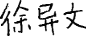 徐异文